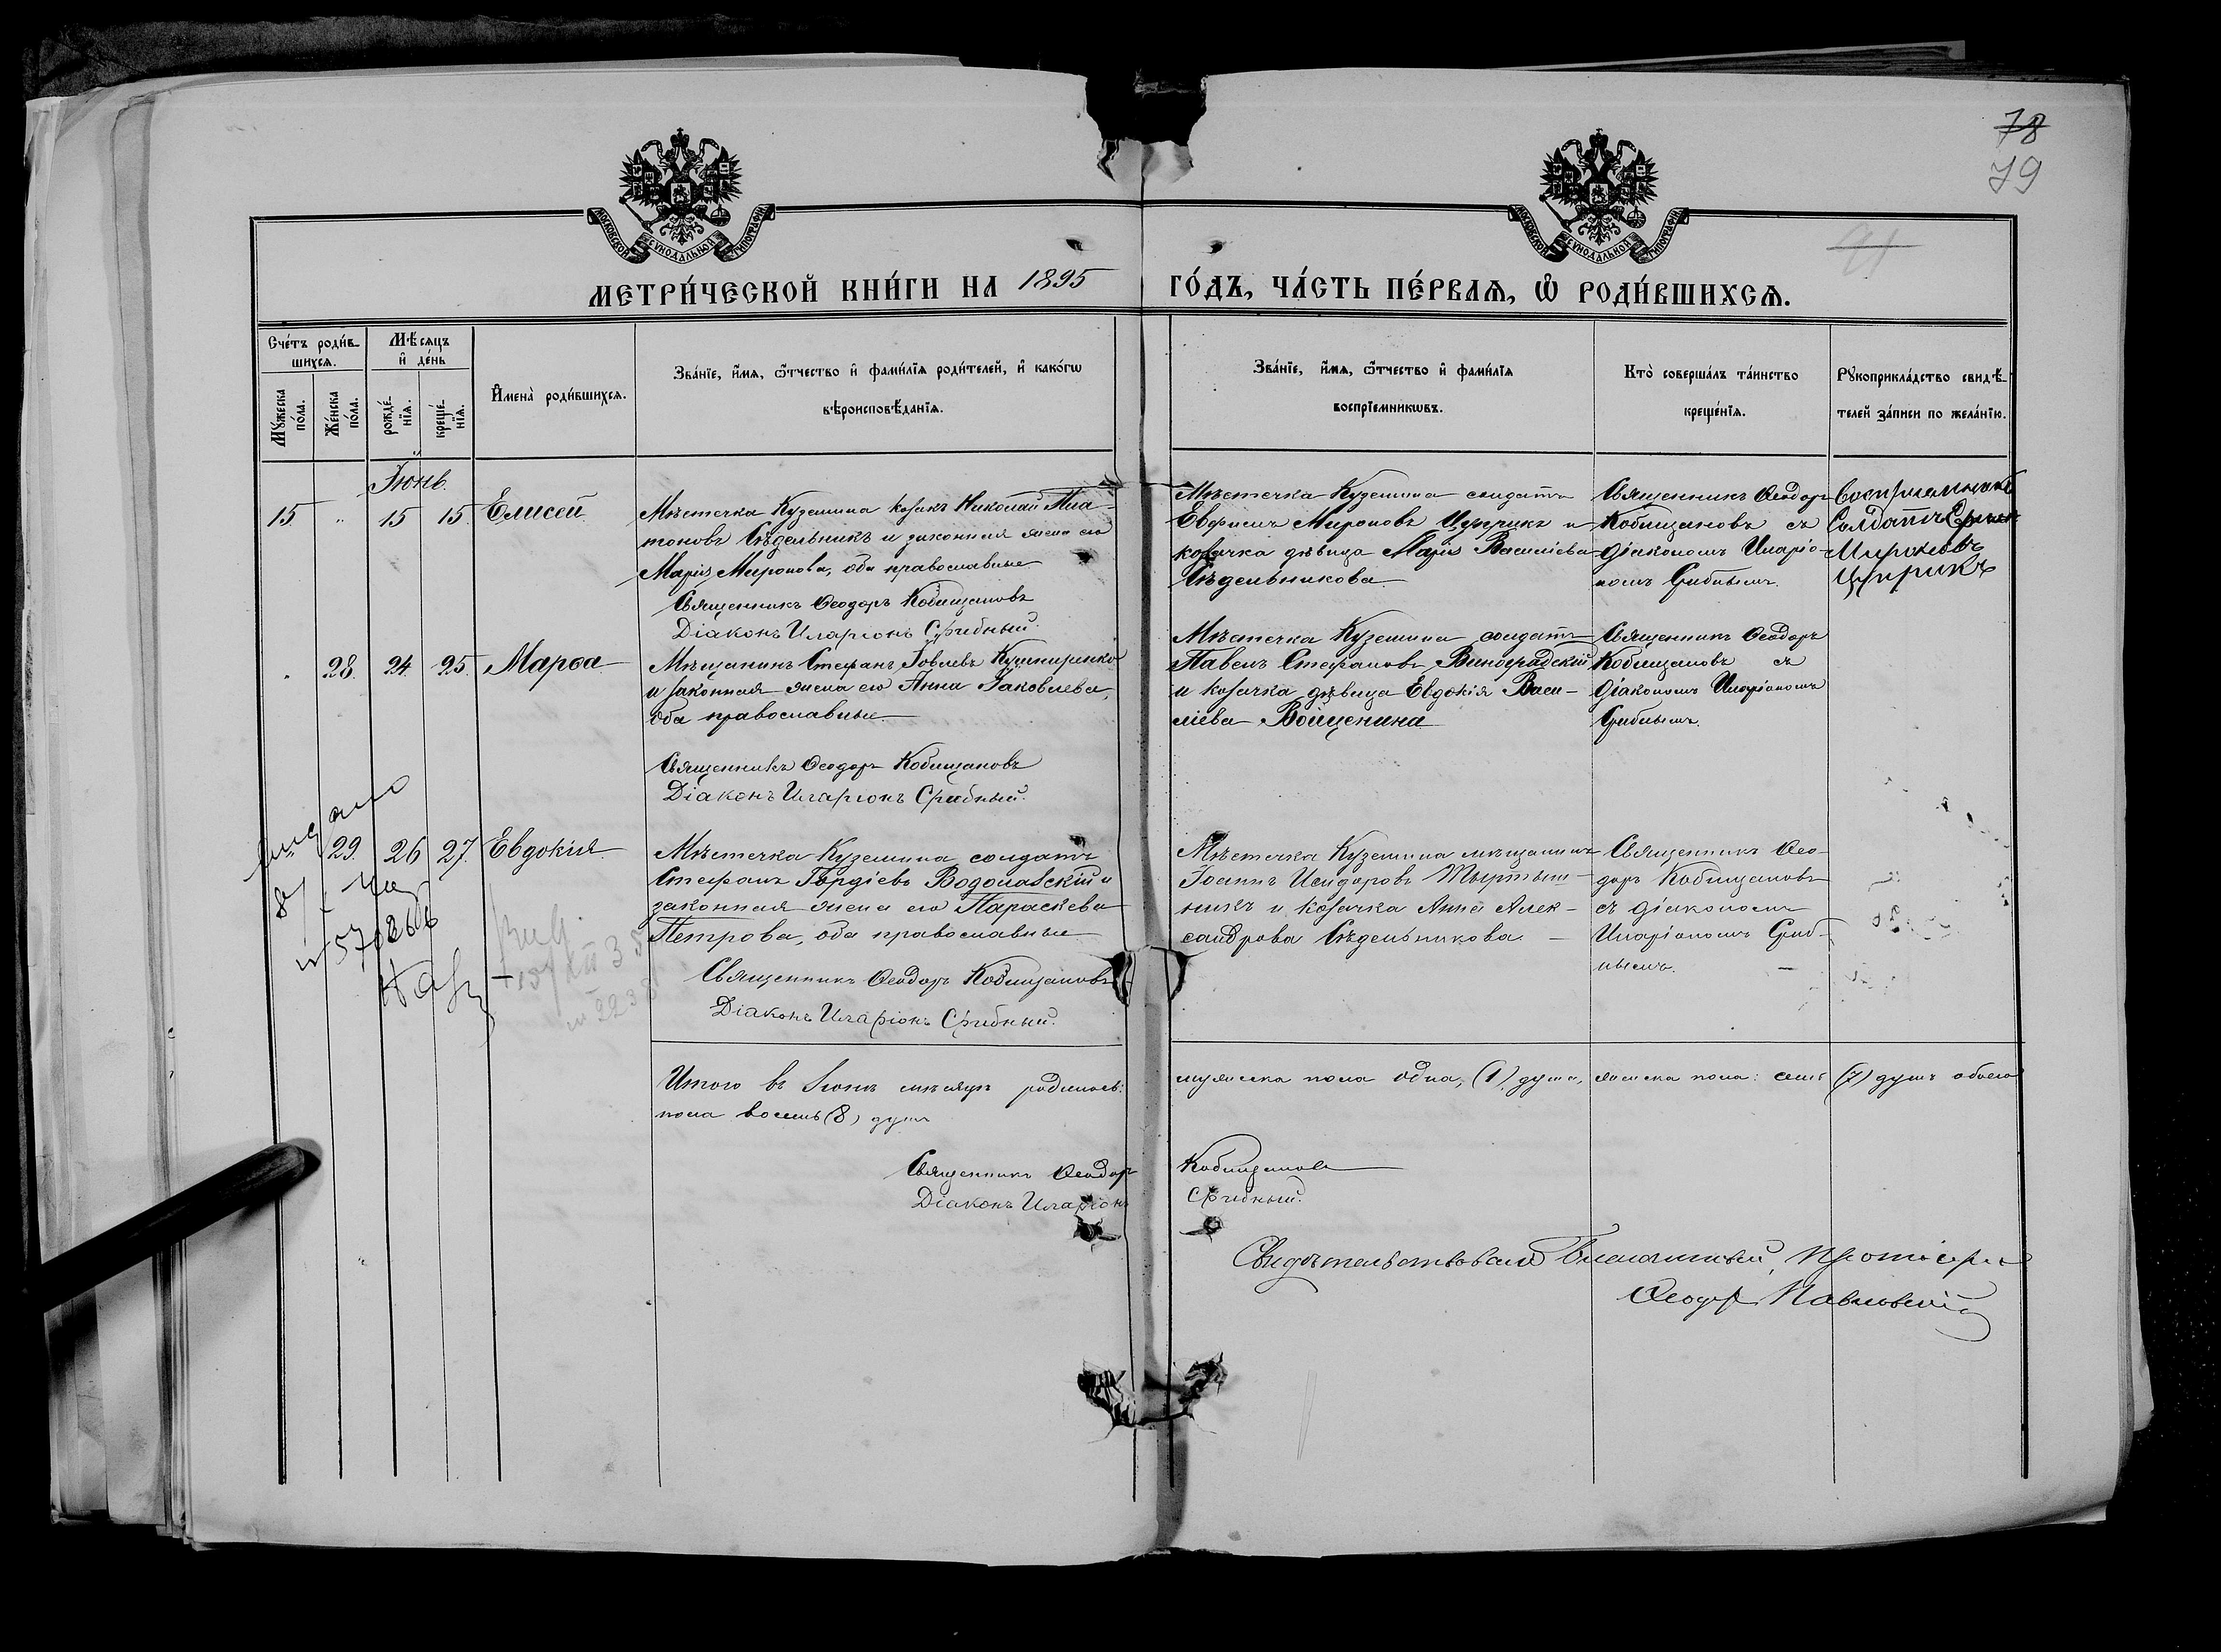 78
79
91
МОСКОВСКОЙ СѴНОДАЛЬНОЙ ТИПОГРАФІИ
МОСКОВСКОЙ СѴНОДАЛЬНОЙ ТИПОГРАФІИ
МЕТРИ́ЧЕСКОЙ КНИ́ГИ НА 1895 ГО́ДЪ, ЧА́СТЬ ПЕ́РВАѦ, Ѽ РОДИ́ВШИХСѦ.
Сче́тъ роди́в-
шихсѧ.
Мѣ́сѧцъ
и҆ де́нь
Мꙋ́жеска
по́ла.
Же́нска
по́ла.
рожде́-
нїѧ.
креще́-
нїѧ.
И҆мена̀ роди́вшихсѧ.
Зва́нїе, и҆́мѧ, ѻ҆́тчество и҆ фами́лїѧ роди́телей, и҆ како́гѡ
вѣроисповѣ́данїѧ.
Зва́нїе, и҆́мѧ, ѻ҆́тчество и҆ фами́лїѧ
воспрїе́мникѡвъ.
Кто̀ соверша́лъ та́инство
креще́нїѧ.
Рꙋкоприкла́дство свидѣ́-
телей за́писи по жела́нїю.
Іюнь.
15 " 15 15 Елисей
Мѣстечка Куземина козакъ Николай Пла-
тоновъ Сѣдельникъ и законная жена его
Марія Миронова, оба православные
Священникъ Ѳеодоръ Кобищановъ
Діаконъ Иларіонъ Срибный.
Мѣстечка Куземина солдатъ
Евфимъ Мироновъ Цуприкъ и
козачка дѣвица Марія Василіева
Сѣдельникова
Священникъ Ѳеодоръ
Кобищановъ съ
діакономъ Иларіо-
номъ Срибнымъ.
Солдатъ
Мироновъ
Цуприкъ
" 28. 24. 25. Марѳа
Мѣщанинъ Стефанъ Іовлевъ Кушниренко
и законная жена его Анна Іаковлева,
оба православные.
Священникъ Ѳеодоръ Кобищановъ
Діаконъ Иларіонъ Срибный.
Мѣстечка Куземина солдатъ
Павелъ Стефановъ Виноградскій
и козачка дѣвица Евдокія Васи-
ліева Войценина
Священникъ Ѳеодоръ
Кобищановъ съ
діакономъ Иларіономъ
Срибнымъ.
29. 26 27. Евдокія
Мѣстечка Куземина солдатъ
Стефанъ Гордіевъ Водолавскій и
законная жена его Параскева
Петрова, оба православные
Священникъ Ѳеодоръ Кобищановъ
Діаконъ Иларіонъ Срибный.
Мѣстечка Куземина мѣщанинъ
Іоаннъ Исидоровъ Тыртыш-
никъ и козачка Анна Алек-
сандрова Сѣдельникова. —
Священникъ Ѳео-
доръ Кобищановъ
съ діакономъ
Иларіономъ Сриб-
нымъ. —
Итого въ Іюнѣ мѣсяцѣ родилось: мужеска пола одна, (1) душа, женска пола: семь (7) душъ обоего
пола восемь (8) душъ
Священникъ Ѳеодоръ Кобищановъ
Діаконъ Иларіонъ Срибный.
Свидѣтельствовалъ Благочинный, Протоіерей
Ѳеодоръ Павловскій